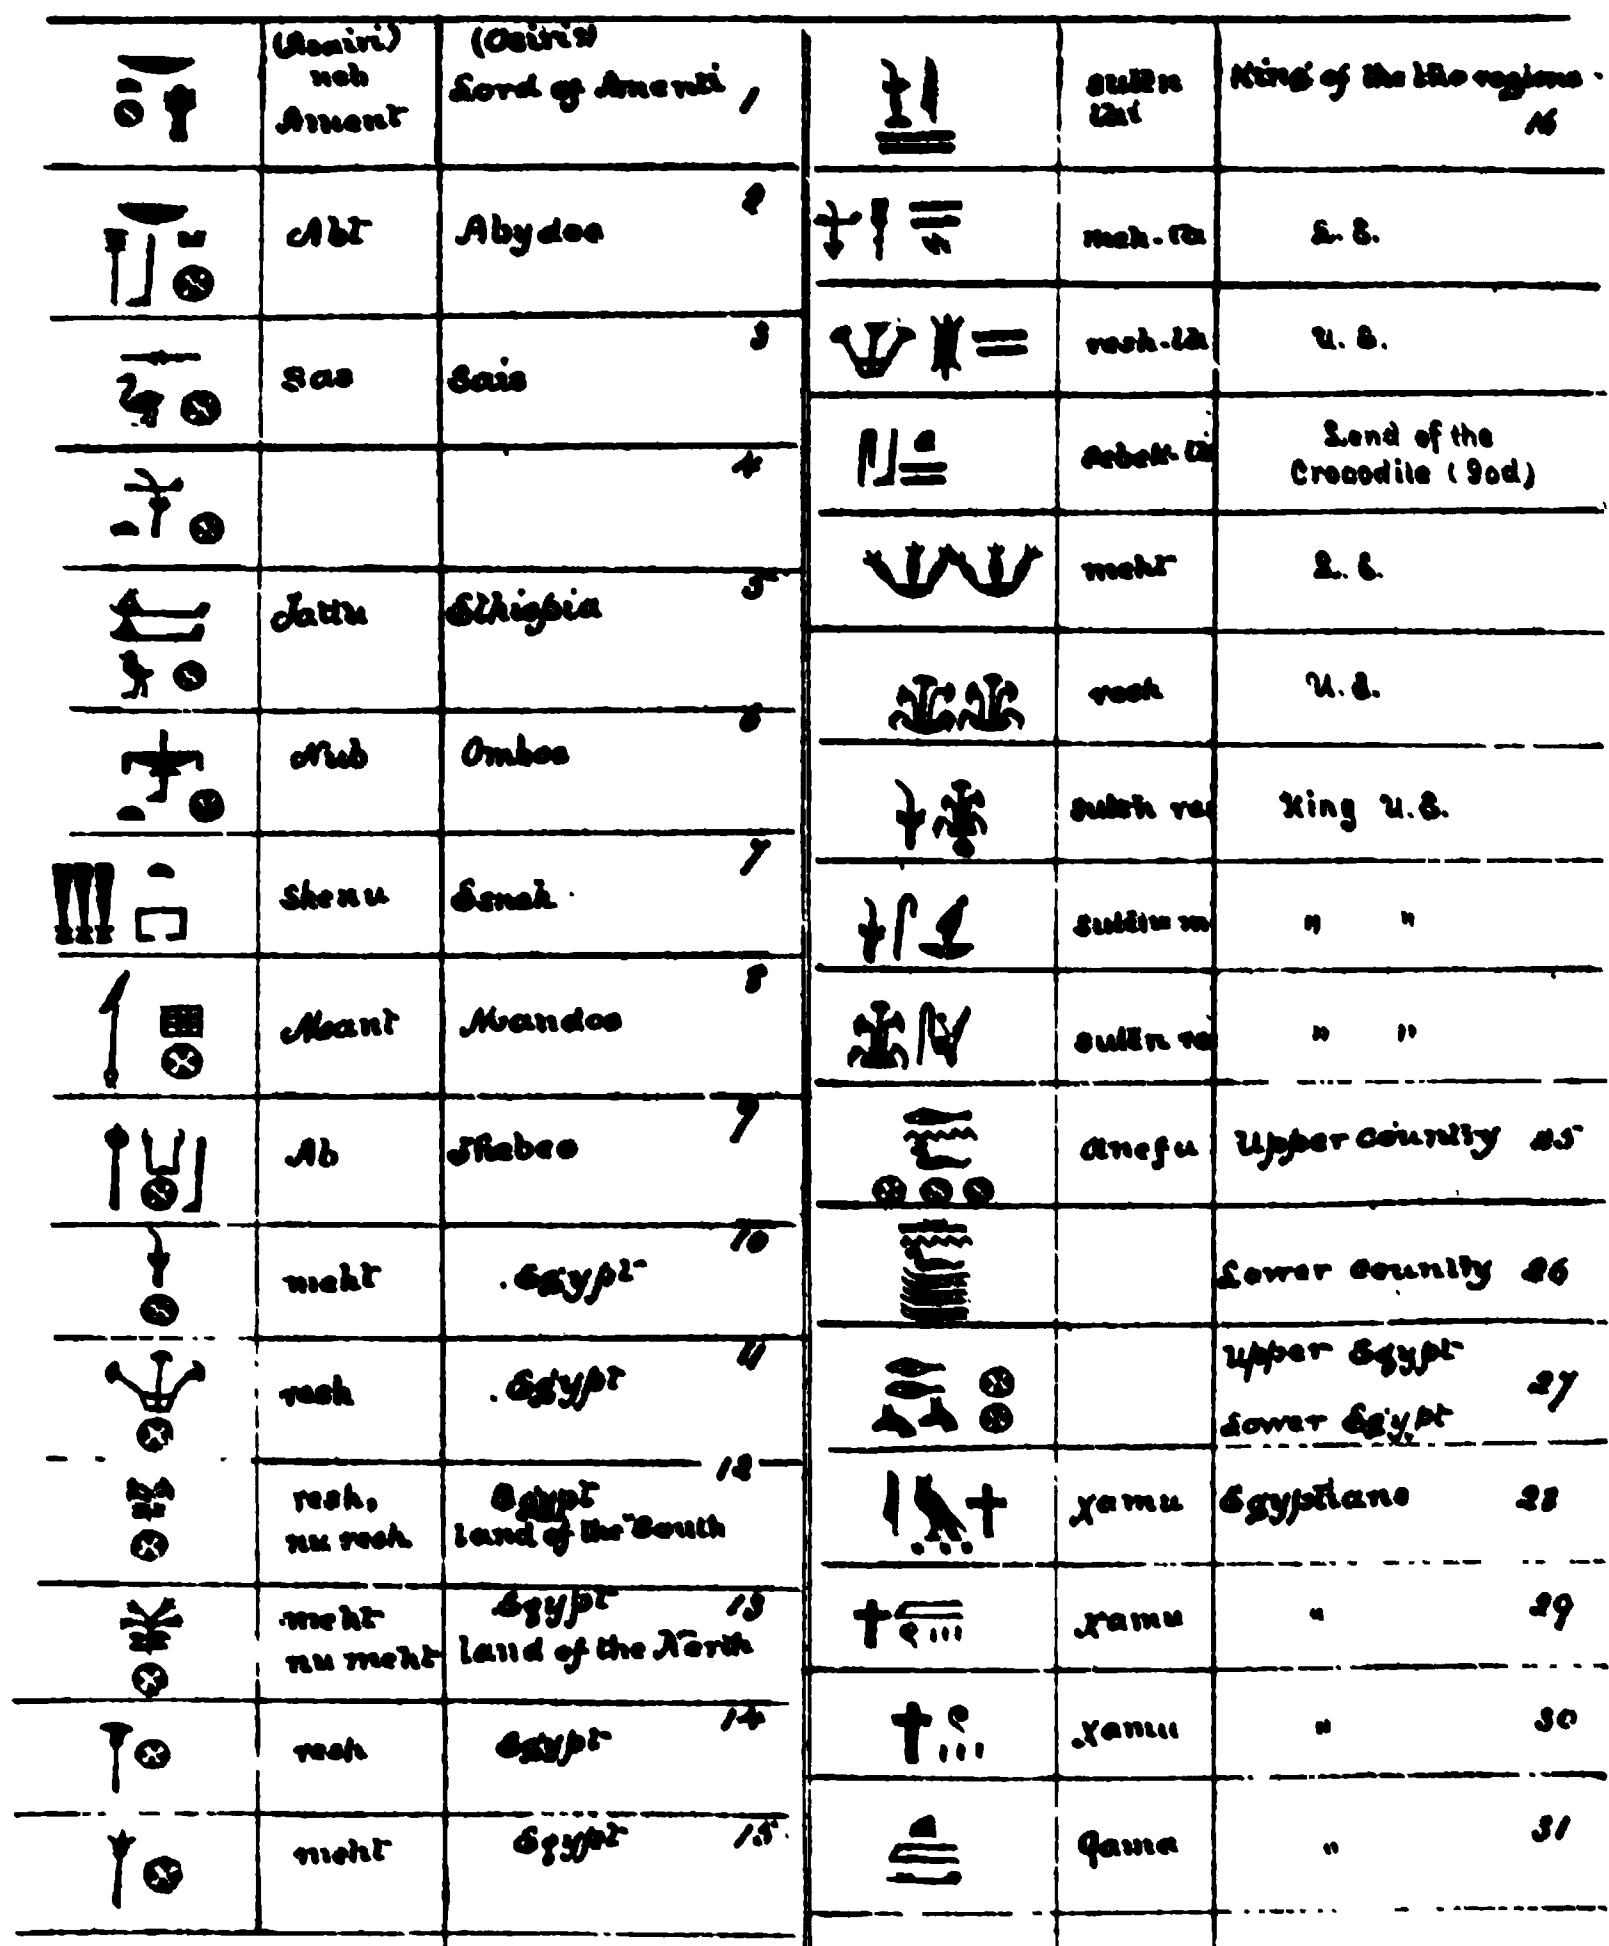 (Osiris)
neb
Lord of Amenti
Ament
1
2
Abt
Abydos
3
Sas
Sais
4
5
Ethiopia
6
Nub
Ombos
7
Shenu
Esneh
8
Mant
Mandos
9
Ab
Thebes
10
meht
Egypt
11
resh
Egypt
12
resh,
Egypt
nu resh
land of the South
13
meht
Egypt
nu meht
land of the North
14
resh
Egypt
15
meht
Egypt
suten
King of the two regions
taï
16
meh-ta
L. E.
resh-ta
U. E.
Land of the
Crocodile (God)
meht
L. E.
resh
U. E.
suten res
King U. E.
suten m
" "
suten re
" "
anefu
Upper Country
25
Lower Country
26
Upper Egypt
27
Lower Egypt
χamu
Egyptians
28
χamu
"
29
χamu
"
30
qama
"
31